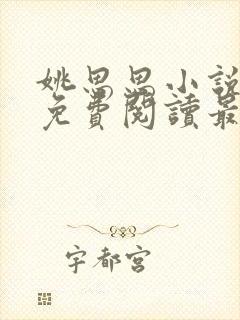 姚思思小說
免費閱讀最
宇都宮